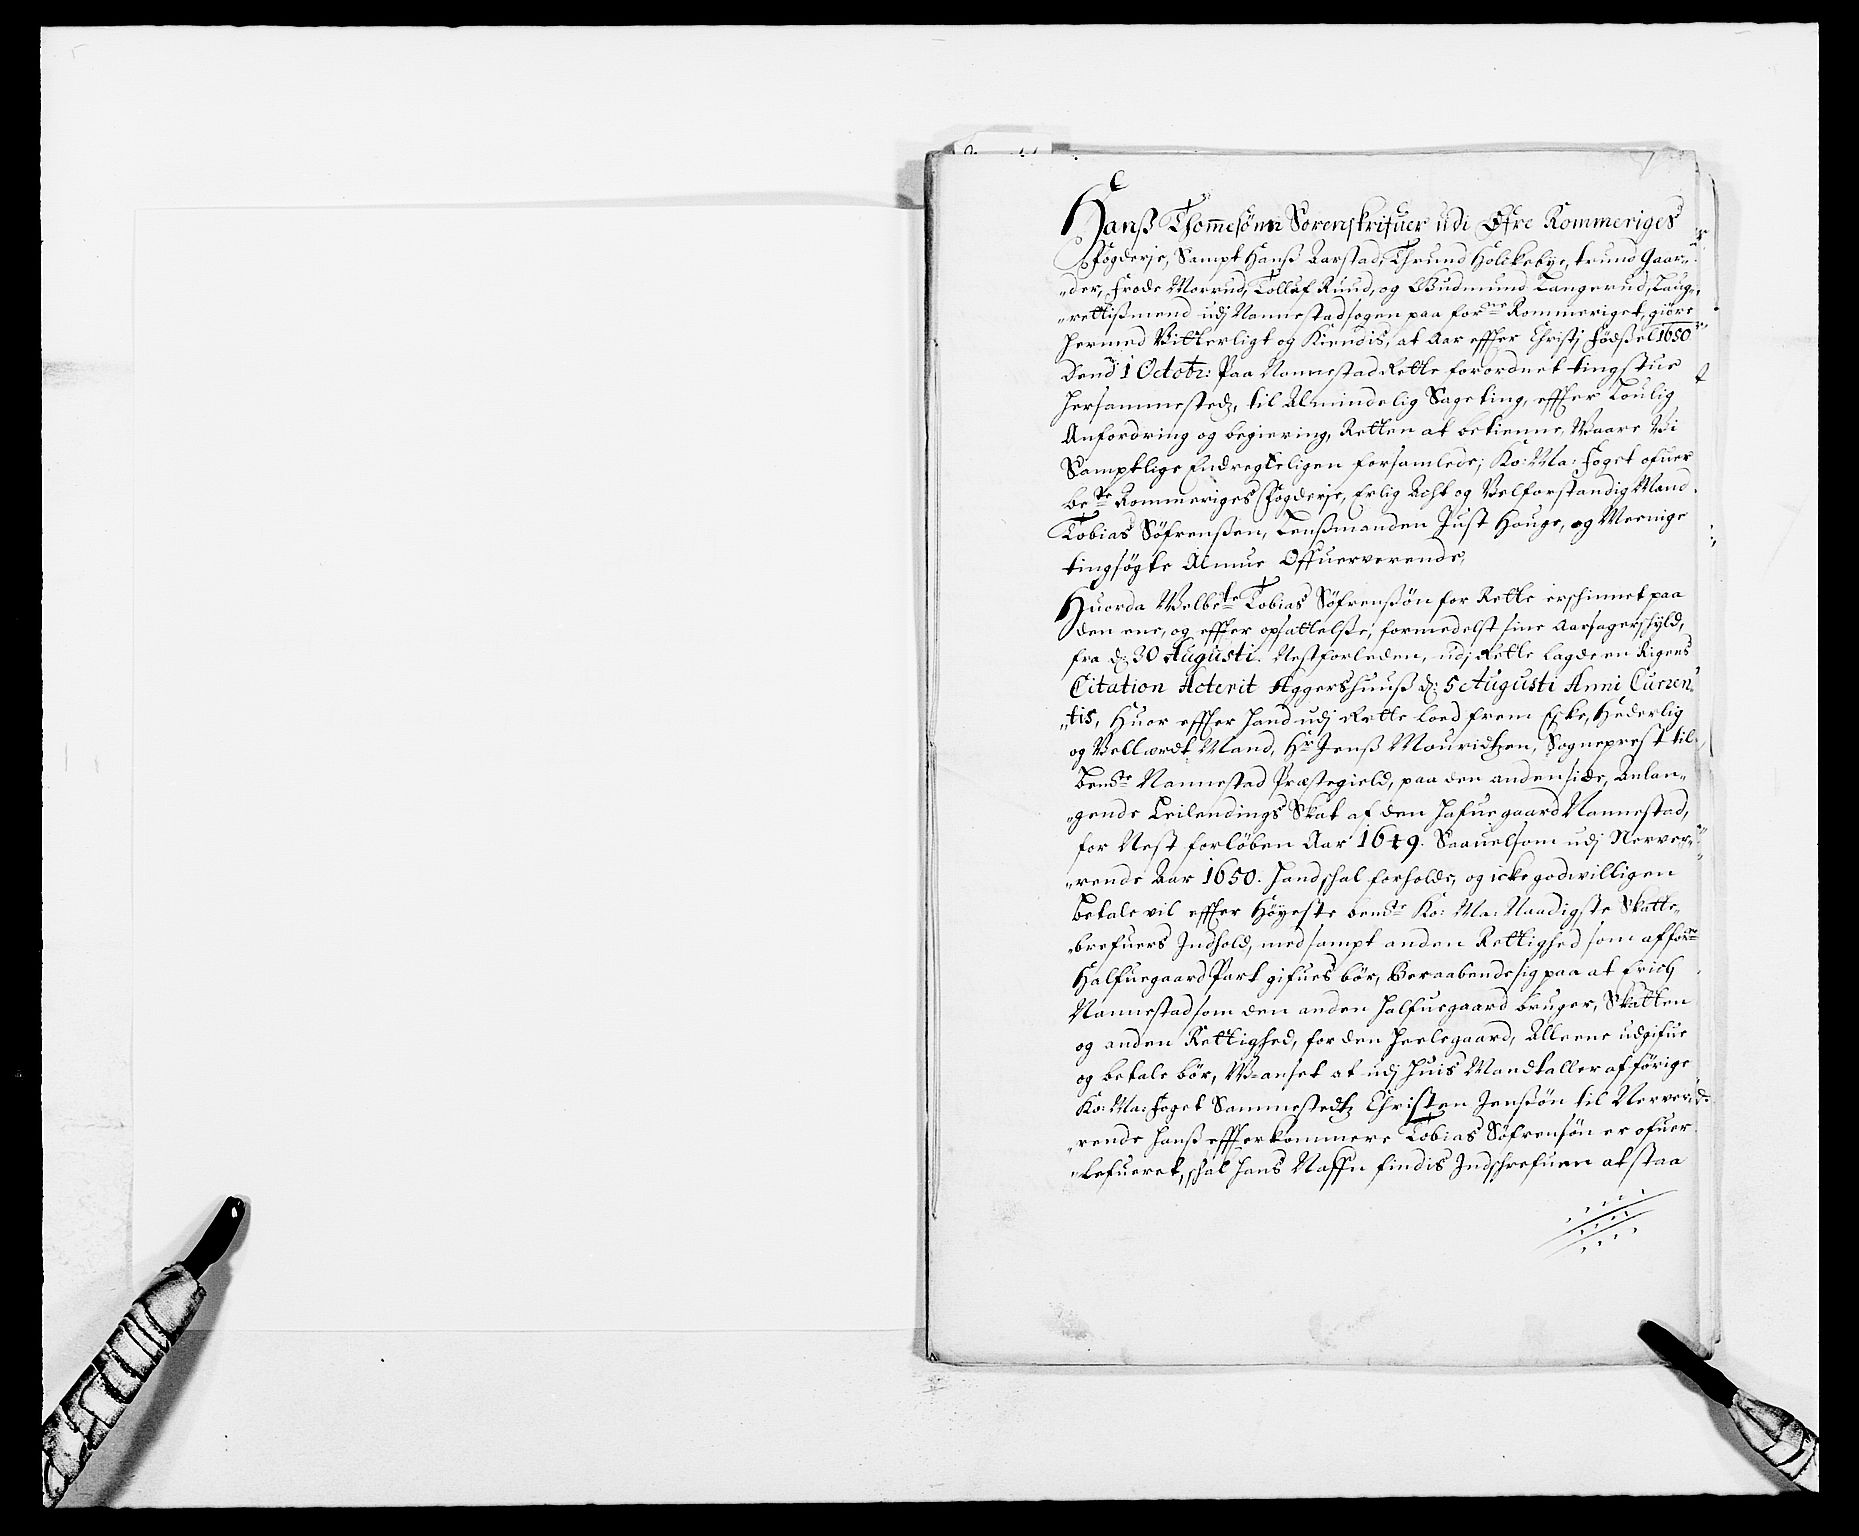 Hanß Thomesönn Sorenskrifuer udi Öfre Rommeriges
Fogderje, Sampt Hanß Aarstad, Thrund Holckebye, trund Gaar„
„der, Frode Morrud, Tollef Ruud, og Gudmund Tangerud, Laug„
„rettißmend udj Nannestadsogen paa forne Rommeriget, giöre
hermed Vitterligt og Kiendis, at Aar effter Christj födßel 1650
Dend 1 Octobr: Paa Nannestad Rette forordnet tingstue
hersammestedz, til Almindelig Sageting, effter Loulig
Anfordring og begiering, Retten at betienne, Waare Wi
Samptlige Endregteligen forsamlede; Ko: Ma: foget ofuer
bete Rommeriges Fogderje, Erlig Acht og Velforstandig Mand
Tobias Söfrenßen, Lenßmanden Just Houge, og Meenige
tingsögte Almue Offuerverende,
Huorda Welbete Tobias Söfrenßön for Rette erschinnet paa
den ene, og effter opsattelße, formedelst sine Aarsagerschyld,
fra d: 30 Augusti. Nestforleden, udj Rette lagde en Rigens
Citation Acterit Aggershuuß d: 5 Augusti Anni Curren„
„tis, Huor effter hand udj Rette loed frem Eske, Hederlig
og Vellærdt Mand, Hr Jenß Mouridtzen, Sogneprest til
bemte Nannestad Præstegield, paa den anden side, Anlan„
„gende Leilendings Skat af den hafuegaard Nannestad,
for Nest forlöben Aar 1649. Saauelsom udj Nerve„
„rende Aar 1650. hand schal forholde, og icke godwilligen
betale vil effter Höyeste bemte Ko: Ma: Naadigste Skatte„
„brefuers Indhold, med sampt anden Rettighed som af forne
Halfuegaard Part gifues bör, Beraabende sig paa at Erich
Nannestad som den anden halfuegaard bruger, Skatten
og anden Rettighed, for den heelegaard, Alleene udgifue
og betale bör, W-anset at udj huis Mandtaller af förige
Ko: Ma: foget Sammestedtz Christen Jenßön til Nerve„
„rende hanß effterkommere Tobias Söfrensön er ofuer
„lefueret, schal hans Naffn findis Indschrefuen at staa